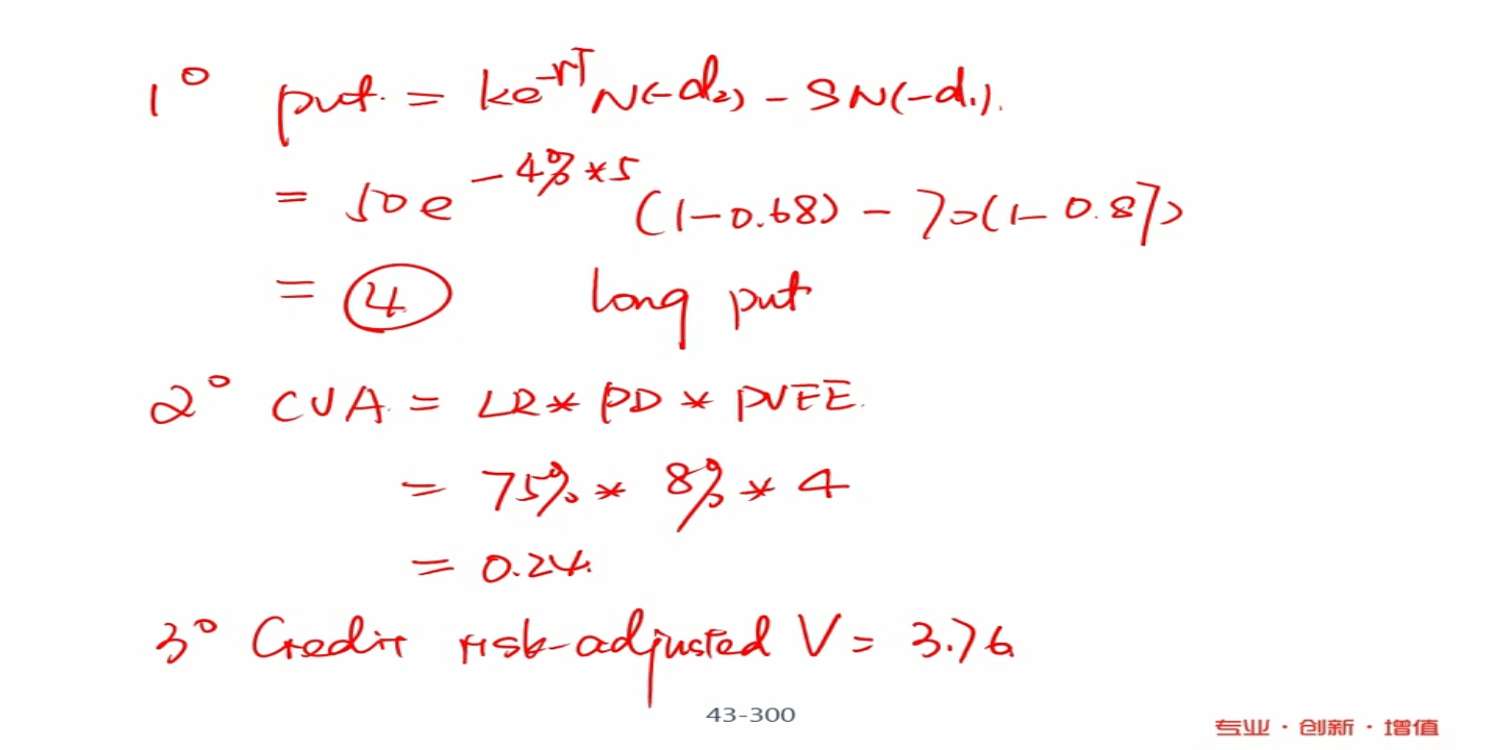 1° put = ke^-rT N(-d2) - SN(-d1).
= 50e^-4%*5 (1-0.68) - 70(1-0.87)
= 4 long put
2° CVA = LR * PD * PVEE.
= 75% * 8% * 4
= 0.24.
3° Credit risk-adjusted V = 3.76
43-300
专业·创新·增值